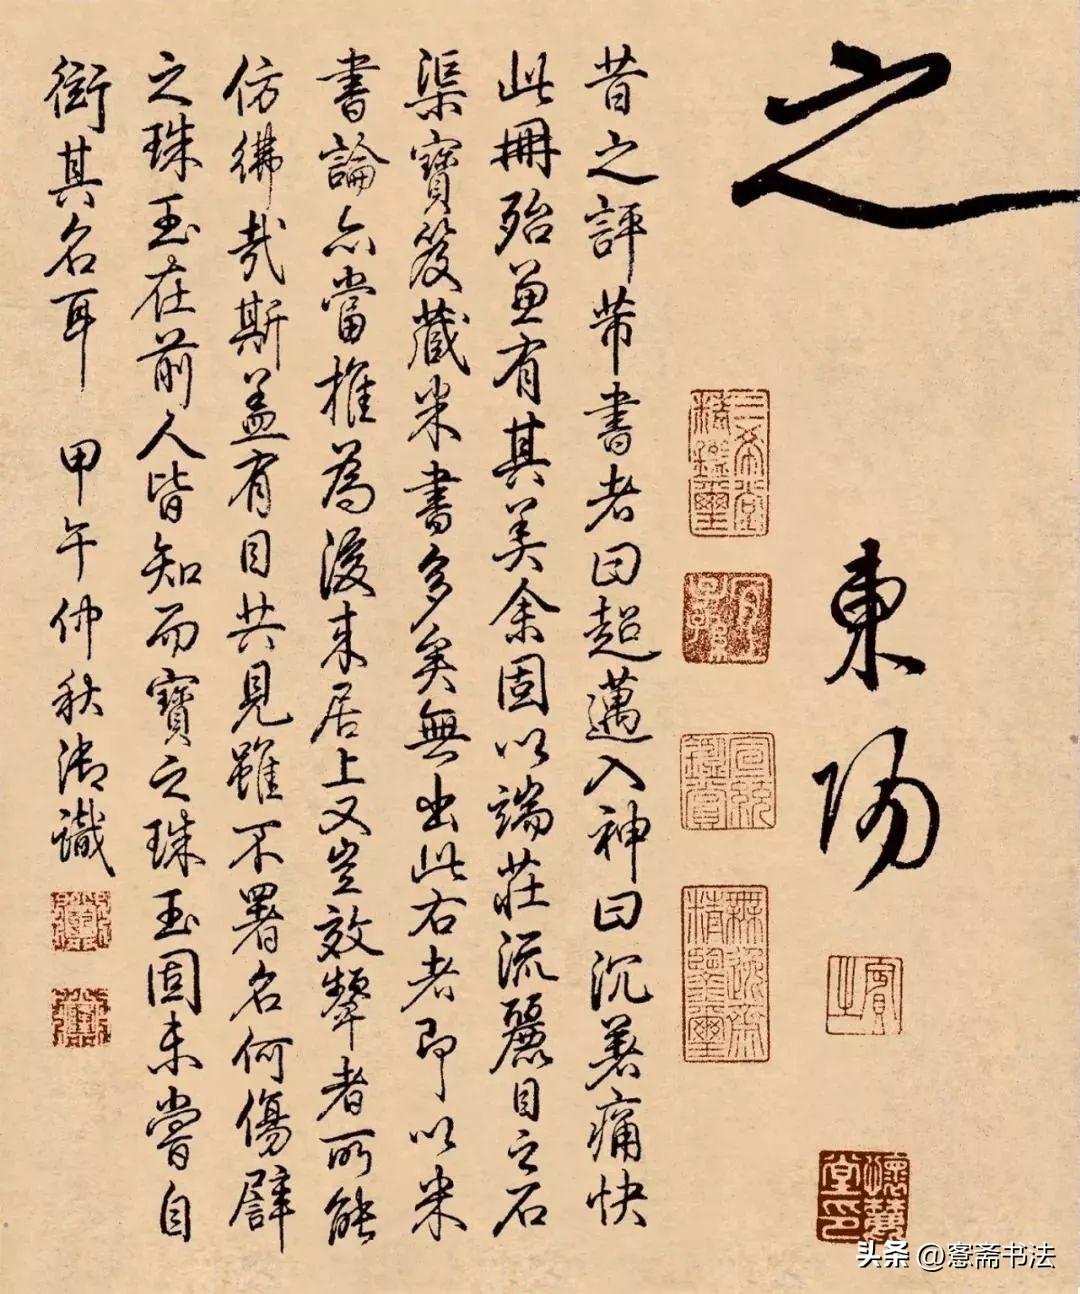 之
東陽
三希堂精鑑璽
宜子孫
宣統鑑賞
無逸齋精鑑璽
昔之評芾書者曰超邁入神曰沉著痛快
此冊殆兼有其美余固以端莊流麗目之石
渠寶笈藏米書多矣無出此右者即以米
書論亦當推為後來居上又豈效顰者所能
仿彿哉斯蓋有目共見雖不署名何傷譬
之珠玉在前人皆知而寶之珠玉固未嘗自
衒其名耳 甲午仲秋御識
头条 @愙斋书法